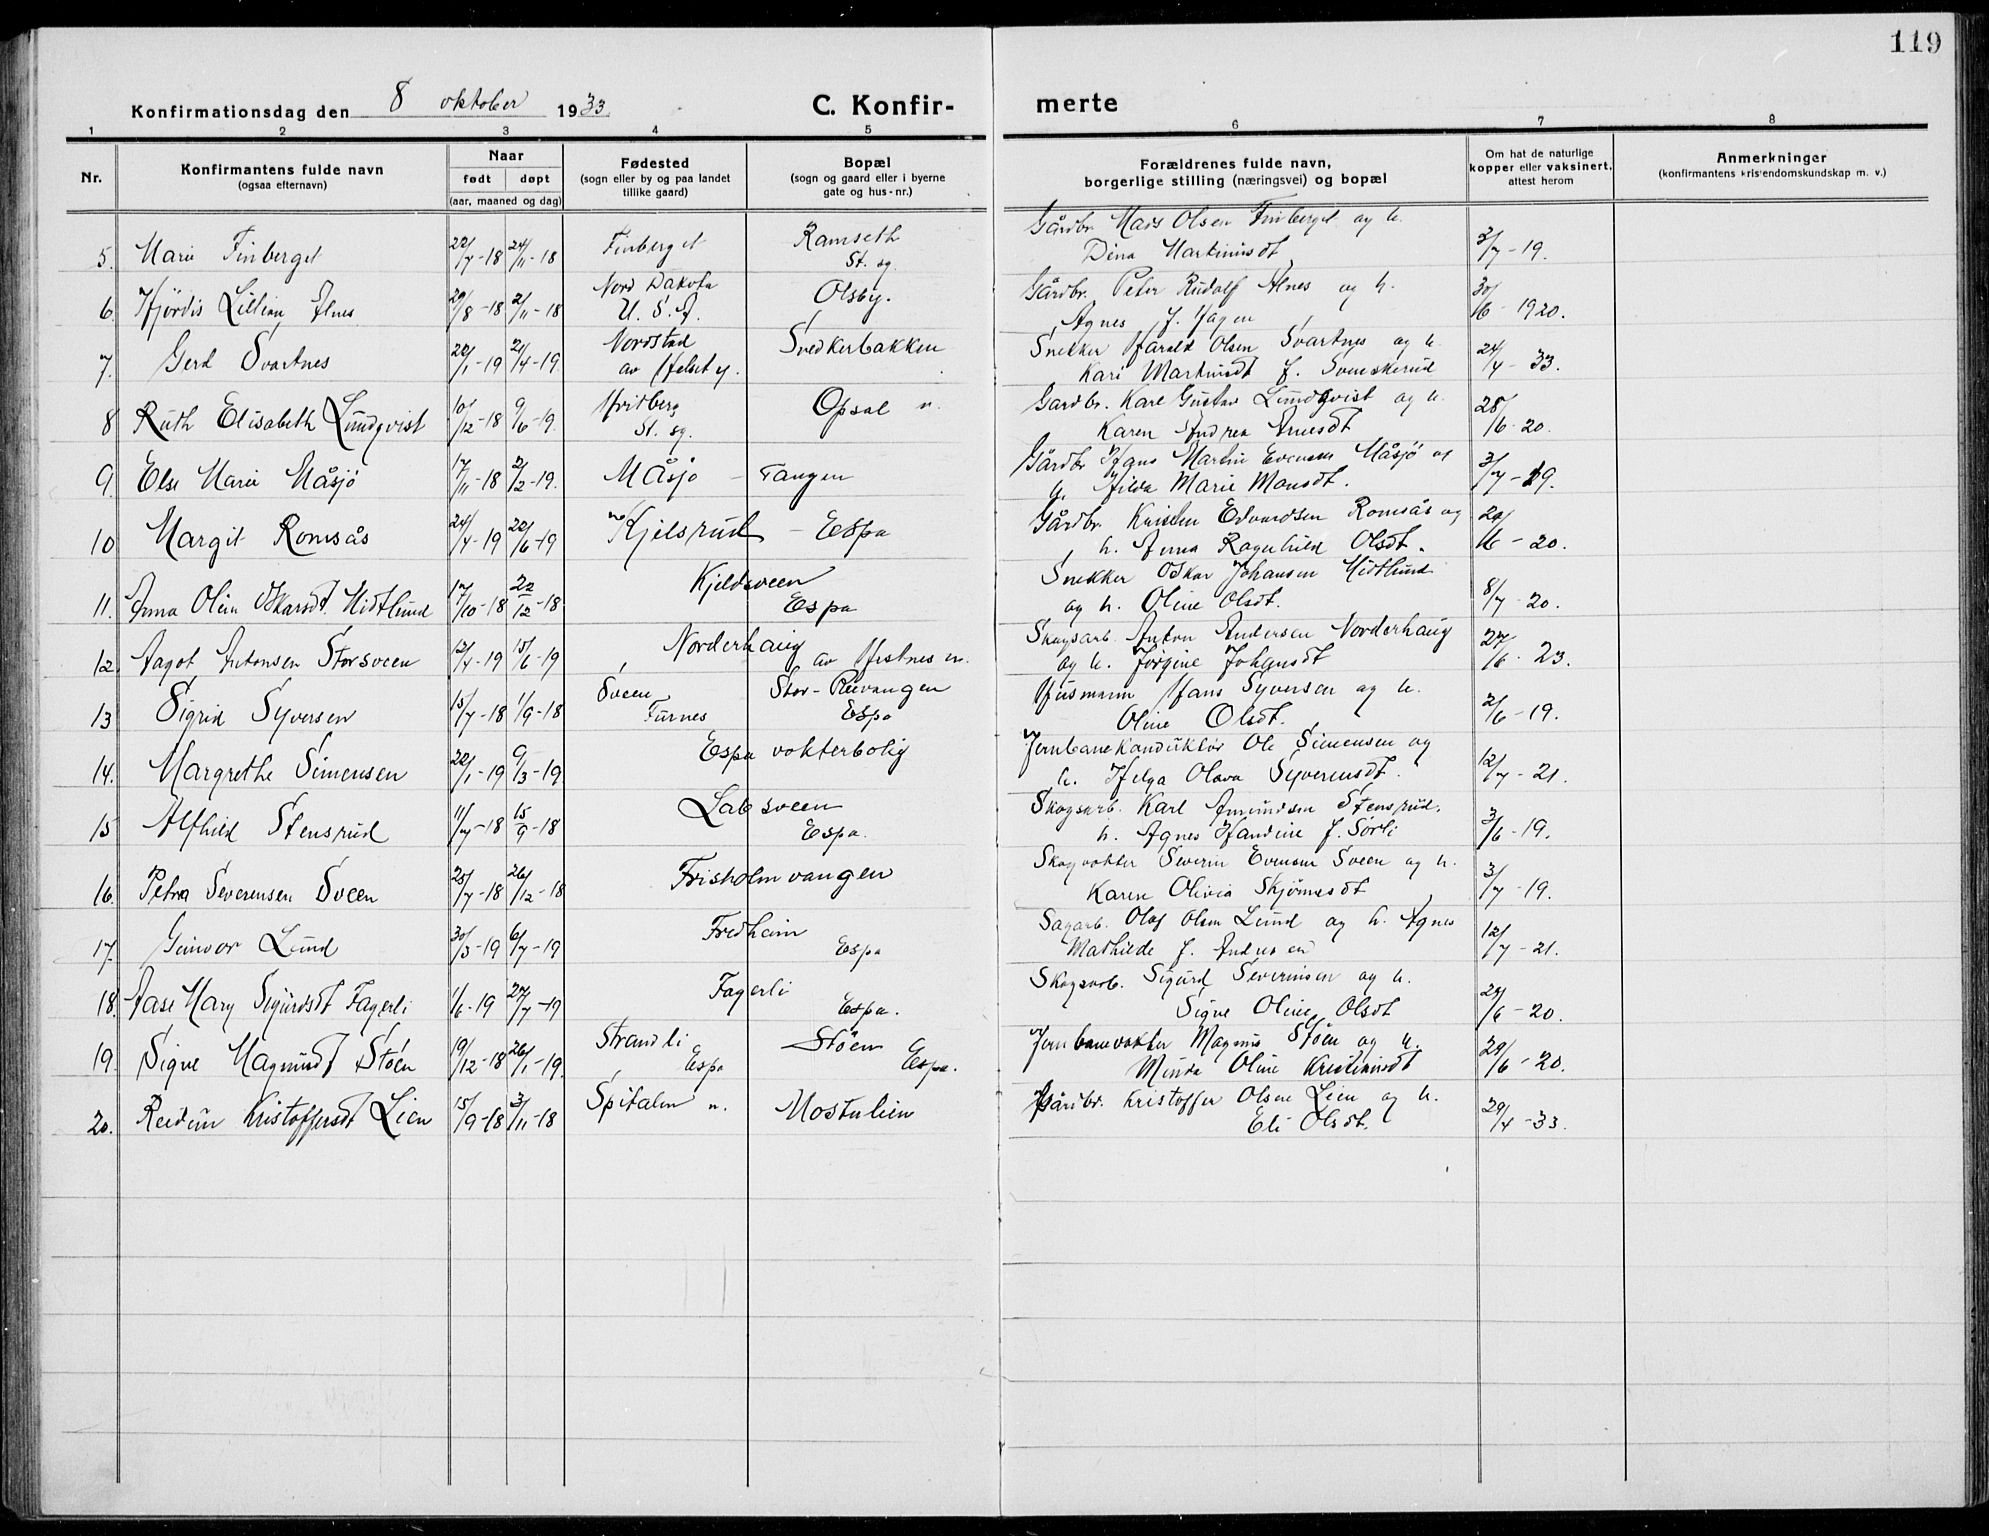 119
Konfirmationsdag den 8 oktober 1933.
C. Konfir-
merte
1 2 3 4 5 6 7 8
Nr.
Konfirmantens fulde navn
(ogsaa efternavn)
Naar
født døpt
(aar, maaned og dag)
Fødested
(sogn eller by og paa landet
tillike gaard)
Bopæl
(sogn og gaard eller i byerne
gate og hus-nr.)
Forældrenes fulde navn,
borgerlige stilling (næringsvei) og bopæl
Om hat de naturlige
kopper eller vaksinert,
attest herom
Anmerkninger
(konfirmantens kristendomskundskap m. v.)
5. Marie Finberget 22/7-18 24/11-18 Finberget Ramseth
St. sg.
Gårdbr. Mads Olsen Finberget og h.
Dina Martinusdt 3/7-19.
6. Hjördis Lillian Alnes 29/8-18 2/11-18 Nord Dakota
U. S. A. Olsby.
Gårdbr. Peter Rudolf Alnes og h.
Agnes f. Hagen 30/6-1920.
7. Gerd Svartnes 22/1-19 21/4-19. Nordstad
av Helset ej. Svedkerbakken
Snekker Harald Olsen Svartnes og h.
Kari Martinsdt f. Svenskerud 24/4-33.
8 Ruth Elisabeth Lundqvist 10/12-18 9/6-19. Hvitberg
St. sg. Opsal n.
Gardbr. Karl Gustav Lundqvist og h.
Karen Andrea Arnesdt 28/6-20.
9. Else Marie Måsjö 17/11-18 2/2-19. Måsjö - Tangen
Gårdbr. Hans Martin Evensen Måsjö og
h. Hilda Marie Monsdt. 3/7-19.
10 Margit Romsås 24/4-19 22/6-19 Kjelsrud - Espa
Gårdbr. Kristen Edvardsen Romsås og
h. Anna Ragnhild Olsdt. 29/6-20.
11. Anna Olin Oskarsdt. Midtlund 17/10-18 22/12-18 Kjeldsveen
Espa
Snekker Oskar Johansen Midtlund
og h. Oline Olsdt. 8/7-20.
12. Aagot Antonsen Storsveen 12/4-19 15/6-19 Norderhaug
av Hestnes n.
Skogsarb. Anton Andersen Norderhaug
og h. Jörgine Johansdt 27/6-23.
13 Sigrid Syversen 15/7-18 1/9-18 Sveen
Furnes Stor-Rævangen
Espa
Husmann Hans Syversen og h.
Oline Olsdt. 2/6-19.
14. Margrethe Simensen 22/1-19 9/3-19. Espa vokterbolig
Jernbanekonduktör Ole Simensen og
h. Helga Olava Syverensdt. 12/7-21.
15 Alfhild Stensrud 11/7-18 15/9-18 Labsveen
Espa.
Skogsarb. Karl Amundsen Stensrud.
h. Agnes Handine f. Sörli 3/6-19.
16. Petra Severensen Sveen 25/7-18 26/12-18 Frisholmvangen
Skogvokter Severin Evensen Sveen og h.
Karen Olivia Skjömesdt 3/7-19.
17. Gunvor Lund 30/3-19 6/7-19 Fredheim
Espa
Sagarb. Olaf Olsen Lund og h. Agnes
Mathilde f. Andersen 12/7-21.
18. Aase Mary Sigurdsdt Fagerli 1/6-19 27/7-19 Fagerli
Espa.
Skogsarb. Sigurd Severinsen og h.
Signe Oline Olsdt 29/6-20.
19. Signe Magnusdt Stöen 19/12-18 26/1-19. Strandli
Espa Stöen
Espa.
Jernbanevokter Magnus Stöen og h.
Minda Oline Kristiansdt 29/6-20.
20. Reidun Kristoffersdt Lien 15/9-18 3/11-18 Spitalen n. Mostulien
Gårdbr. Kristoffer Olsen Lien og h.
Eli Olsdt. 29/4-33.